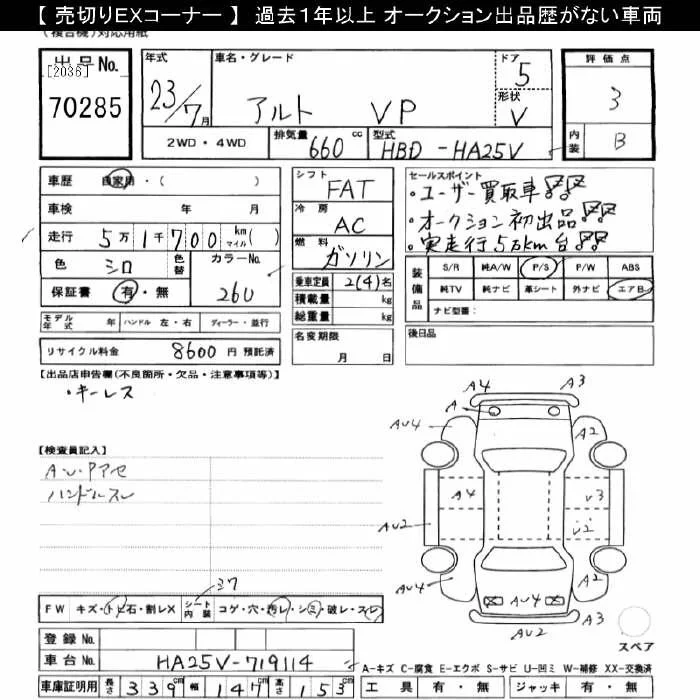 【 売切りEXコーナー 】 過去１年以上 オークション出品歴がない車両
(複合機)対応用紙
出品No. [2036] 70285
年式 23/7月
車名・グレード アルト VP
ドア 5
形状 V
評価点 3
内装 B
2WD・4WD
排気量 660 cc
型式 HBD-HA25V
車歴 自家用・( )
車検 年 月
走行 5万1千700 km マイル( )
色 シロ 色替
カラーNo. 26U
保証書 有・無
モデル年式 年 ハンドル 左・右 ディーラー・並行
リサイクル料金 8600 円 預託済
シフト FAT
冷房 AC
燃料 ガソリン
乗車定員 2(4)名
積載量 kg
総重量 kg
名変期限 月 日
セールスポイント
・ユーザー買取車
・オークション初出品
・実走行5万km台
装備品 S/R 純A/W P/S P/W ABS
純TV 純ナビ 革シート 外ナビ エアB
ナビ型番:
後日品
【出品店申告欄(不良箇所・欠品・注意事項等)】
・キーレス
【検査員記入】
AU・Pアセ
ハンドルスレ
A4 A3
A
AU4 A2
A4 U3
AU2 U2
AU4 AU4 A2
AU2 A3
スペア
シワ
FW キズ・トビ石・割レX シート内装 コゲ・穴・汚レ・シミ・破レ・スレ
登録No.
車台No. HA25V-719114
A-キズ C-腐食 E-エクボ S-サビ U-凹ミ W-補修 XX-交換済
車庫証明用 長さ 339cm 幅 147cm 高さ 153cm
工具 有・無 ジャッキ 有・無